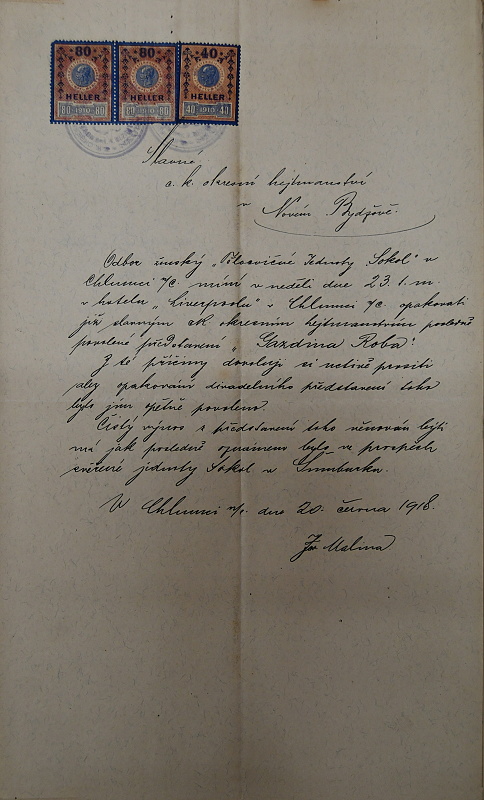 80 80 40
HELLER HELLER HELLER
80 1910 80 80 1910 80 40 1910 40
Slavné
c. k. okresní hejtmanství
v Novém Bydžově.
Odbor ženský „Tělocvičné Jednoty Sokol" v
Chlumci n/C. míní v neděli dne 23. t. m.
v hotelu „Liverpoolu" v Chlumci n/C. opakovati
již slavným ck okresním hejtmanstvím posledně
povolené představení „Gazdina Roba".
Z té příčiny dovoluji si uctivě prositi
aby opakování divadelního představení toho
bylo jim opětně povoleno.
Čistý výnos z představení toho věnován býti
má jak posledně oznámeno bylo ve prospěch
jednoty Sokol v
V Chlumci n/C. dne 20. června 1918.
Malina